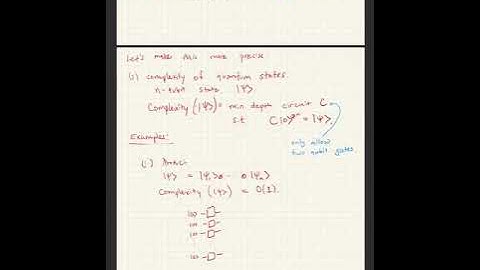 Let's make this more precise
(1) complexity of quantum states.
n-qubit state |ψ⟩
Complexity (|ψ⟩) = min depth circuit C
s.t C|0⟩^⊗n = |ψ⟩.
only allow
two qubit gates.
Examples:
(i)
|ψ⟩ = |ψ₁⟩⊗ - ⊗|ψₙ⟩
Complexity (|ψ⟩) = O(1).
|0⟩
|0⟩
|0⟩
|0⟩